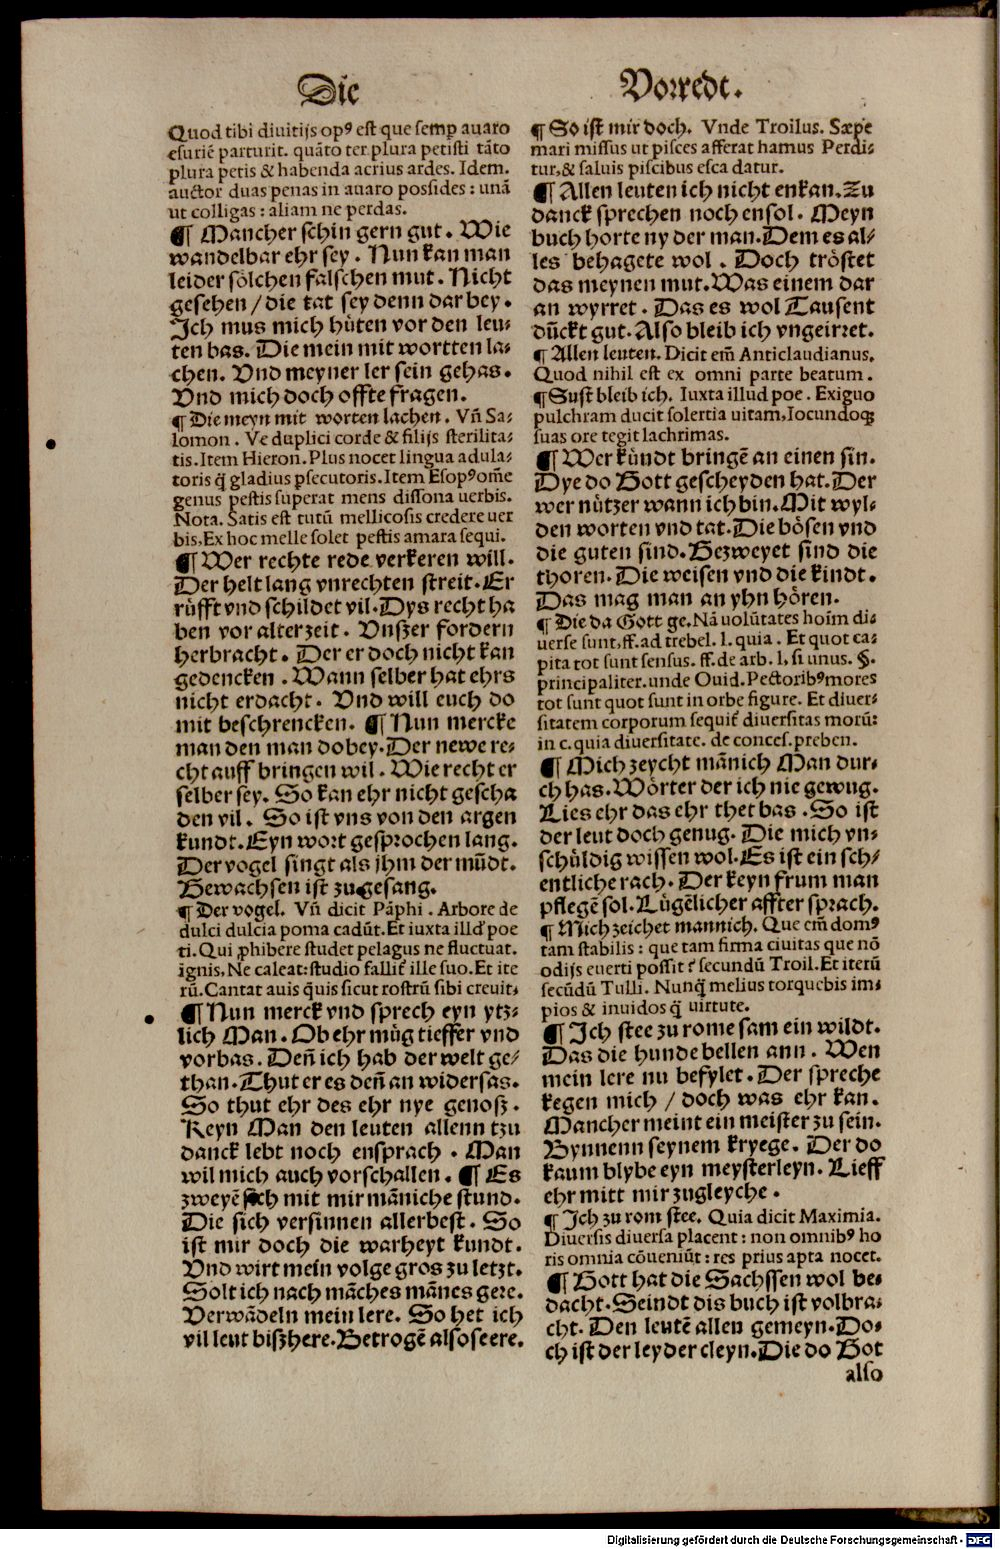 Die
Quod tibi diuitijs opꝰ est que semꝑ auaro
esuriē parturit. quāto ter plura petisti tāto
plura petis & habenda acrius ardes. Idem.
auctor duas penas in auaro possides : unā
ut colligas : aliam ne perdas.
¶ Mancher schin gern gut. Wie
wandelbar ehr sey. Nun kan man
leider sölchen falschen mut. Nicht
gesehen / die tat sey denn dar bey.
Ich mus mich hüten vor den leu-
ten bas. Die mein mit wortten la-
chen. Vnd meyner ler sein gehas.
Vnd mich doch offte fragen.
¶ Die meyn mit worten lachen. Vn̄ Sa-
lomon. Ve duplici corde & filijs sterilita-
tis. Item Hieron. Plus nocet lingua adula-
toris q̄ gladius ꝑsecutoris. Item Esopꝰ om̄e
genus pestis superat mens dissona uerbis.
Nota. Satis est tutū mellicosis credere uer
bis, Ex hoc melle solet pestis amara sequi.
¶ Wer rechte rede verkeren will.
Der helt lang vnrechten streit. Er
rüfft vnd schildet vil. Dys recht ha
ben vor alter zeit. Vnßer fordern
herbracht. Der er doch nicht kan
gedencken. Wann selber hat ehrs
nicht erdacht. Vnd will euch do
mit beschrencken. ¶ Nun mercke
man den man dobey. Der newe re-
cht auff bringen wil. Wie recht er
selber sey. So kan ehr nicht gescha
den vil. So ist vns von den argen
kundt. Eyn wort gesprochen lang.
Der vogel singt als jhm der mūdt.
Bewachsen ist zu gesang.
¶ Der vogel. Vn̄ dicit Pāphi. Arbore de
dulci dulcia poma cadūt. Et iuxta illdꝰ poe
ti. Qui ꝓhibere studet pelagus ne fluctuat.
ignis, Ne caleat: studio fallit̄ ille suo. Et ite
rū. Cantat auis quis sicut rostrū sibi creuit.
¶ Nun merck vnd sprech eyn ytz-
lich Man. Ob ehr müg tieffer vnd
vorbas. Den̄ ich hab der welt ge-
than. Thut er es den̄ an widersas.
So thut ehr des ehr nye genoß.
Keyn Man den leuten allenn tzu
danck lebt noch ensprach. Man
wil mich auch vorschallen. ¶ Es
zweyē sich mit mir māniche stund.
Die sich versinnen allerbest. So
ist mir doch die warheyt kundt.
Vnd wirt mein volge gros zu letzt.
Solt ich nach māches mānes gere.
Verwādeln mein lere. So het ich
vil leut bißhere. Betrogē also seere.
Vorredt.
¶ So ist mir doch. Vnde Troilus. Sæpe
mari missus ut pisces afferat hamus Perdi-
tur, & saluis piscibus esca datur.
¶ Allen leuten ich nicht enkan. Zu
danck sprechen noch ensol. Meyn
buch horte ny der man. Dem es al-
les behagete wol. Doch tröstet
das meynen mut. Was einem dar
an wyrret. Das es wol Tausent
dūckt gut. Also bleib ich vngeirret.
¶ Allen leuten. Dicit em̄ Anticlaudianus.
Quod nihil est ex omni parte beatum.
¶ Sust bleib ich. Iuxta illud poe. Exiguo
pulchram ducit solertia uitam, Iocundoqꝫ
suas ore tegit lachrimas.
¶ Wer kündt bringē an einen sin.
Dye do Gott gescheyden hat. Der
wer nützer wann ich bin. Mit wyl-
den worten vnd tat. Die bösen vnd
die guten sind. Bezweyet sind die
thoren. Die weisen vnd die kindt.
Das mag man an yhn hören.
¶ Die da Gott ge. Nā uolūtates hoīm di-
uerse sunt. ff. ad trebel. l. quia. Et quot ca-
pita tot sunt sensus. ff. de arb. l, si unus. §.
principaliter. unde Ouid. Pectoribꝰ mores
tot sunt quot sunt in orbe figure. Et diuer-
sitatem corporum sequit̄ diuersitas morū:
in c. quia diuersitate. de conces. preben.
¶ Mich zeycht mānich Man dur-
ch has. Wörter der ich nie gewug.
Lies ehr das ehr thet bas. So ist
der leut doch genug. Die mich vn-
schüldig wissen wol. Es ist ein sch-
entliche rach. Der keyn frum man
pflegē sol. Lügēlicher affter sprach.
¶ Mich zeichet mannich. Que em̄ domꝰ
tam stabilis : que tam firma ciuitas que nō
odijs euerti possit ? secundū Troil. Et iterū
secūdū Tulli. Nunq̄ melius torquebis im-
pios & inuidos q̄ uirtute.
¶ Ich stee zu rome sam ein wildt.
Das die hunde bellen ann. Wen
mein lere nu befylet. Der spreche
kegen mich / doch was ehr kan.
Mancher meint ein meister zu sein.
Bynnenn seynem kryege. Der do
kaum blybe eyn meysterleyn. Lieff
ehr mitt mir zugleyche.
¶ Ich zu rom stee. Quia dicit Maximia.
Diuersis diuersa placent : non omnibꝰ ho
ris omnia cōueniūt : res prius apta nocet.
¶ Gott hat die Sachssen wol be-
dacht. Seindt dis buch ist volbra-
cht. Den leutē allen gemeyn. Do-
ch ist der leyder cleyn. Die do Got
also
Digitalisierung gefördert durch die Deutsche Forschungsgemeinschaft - DFG